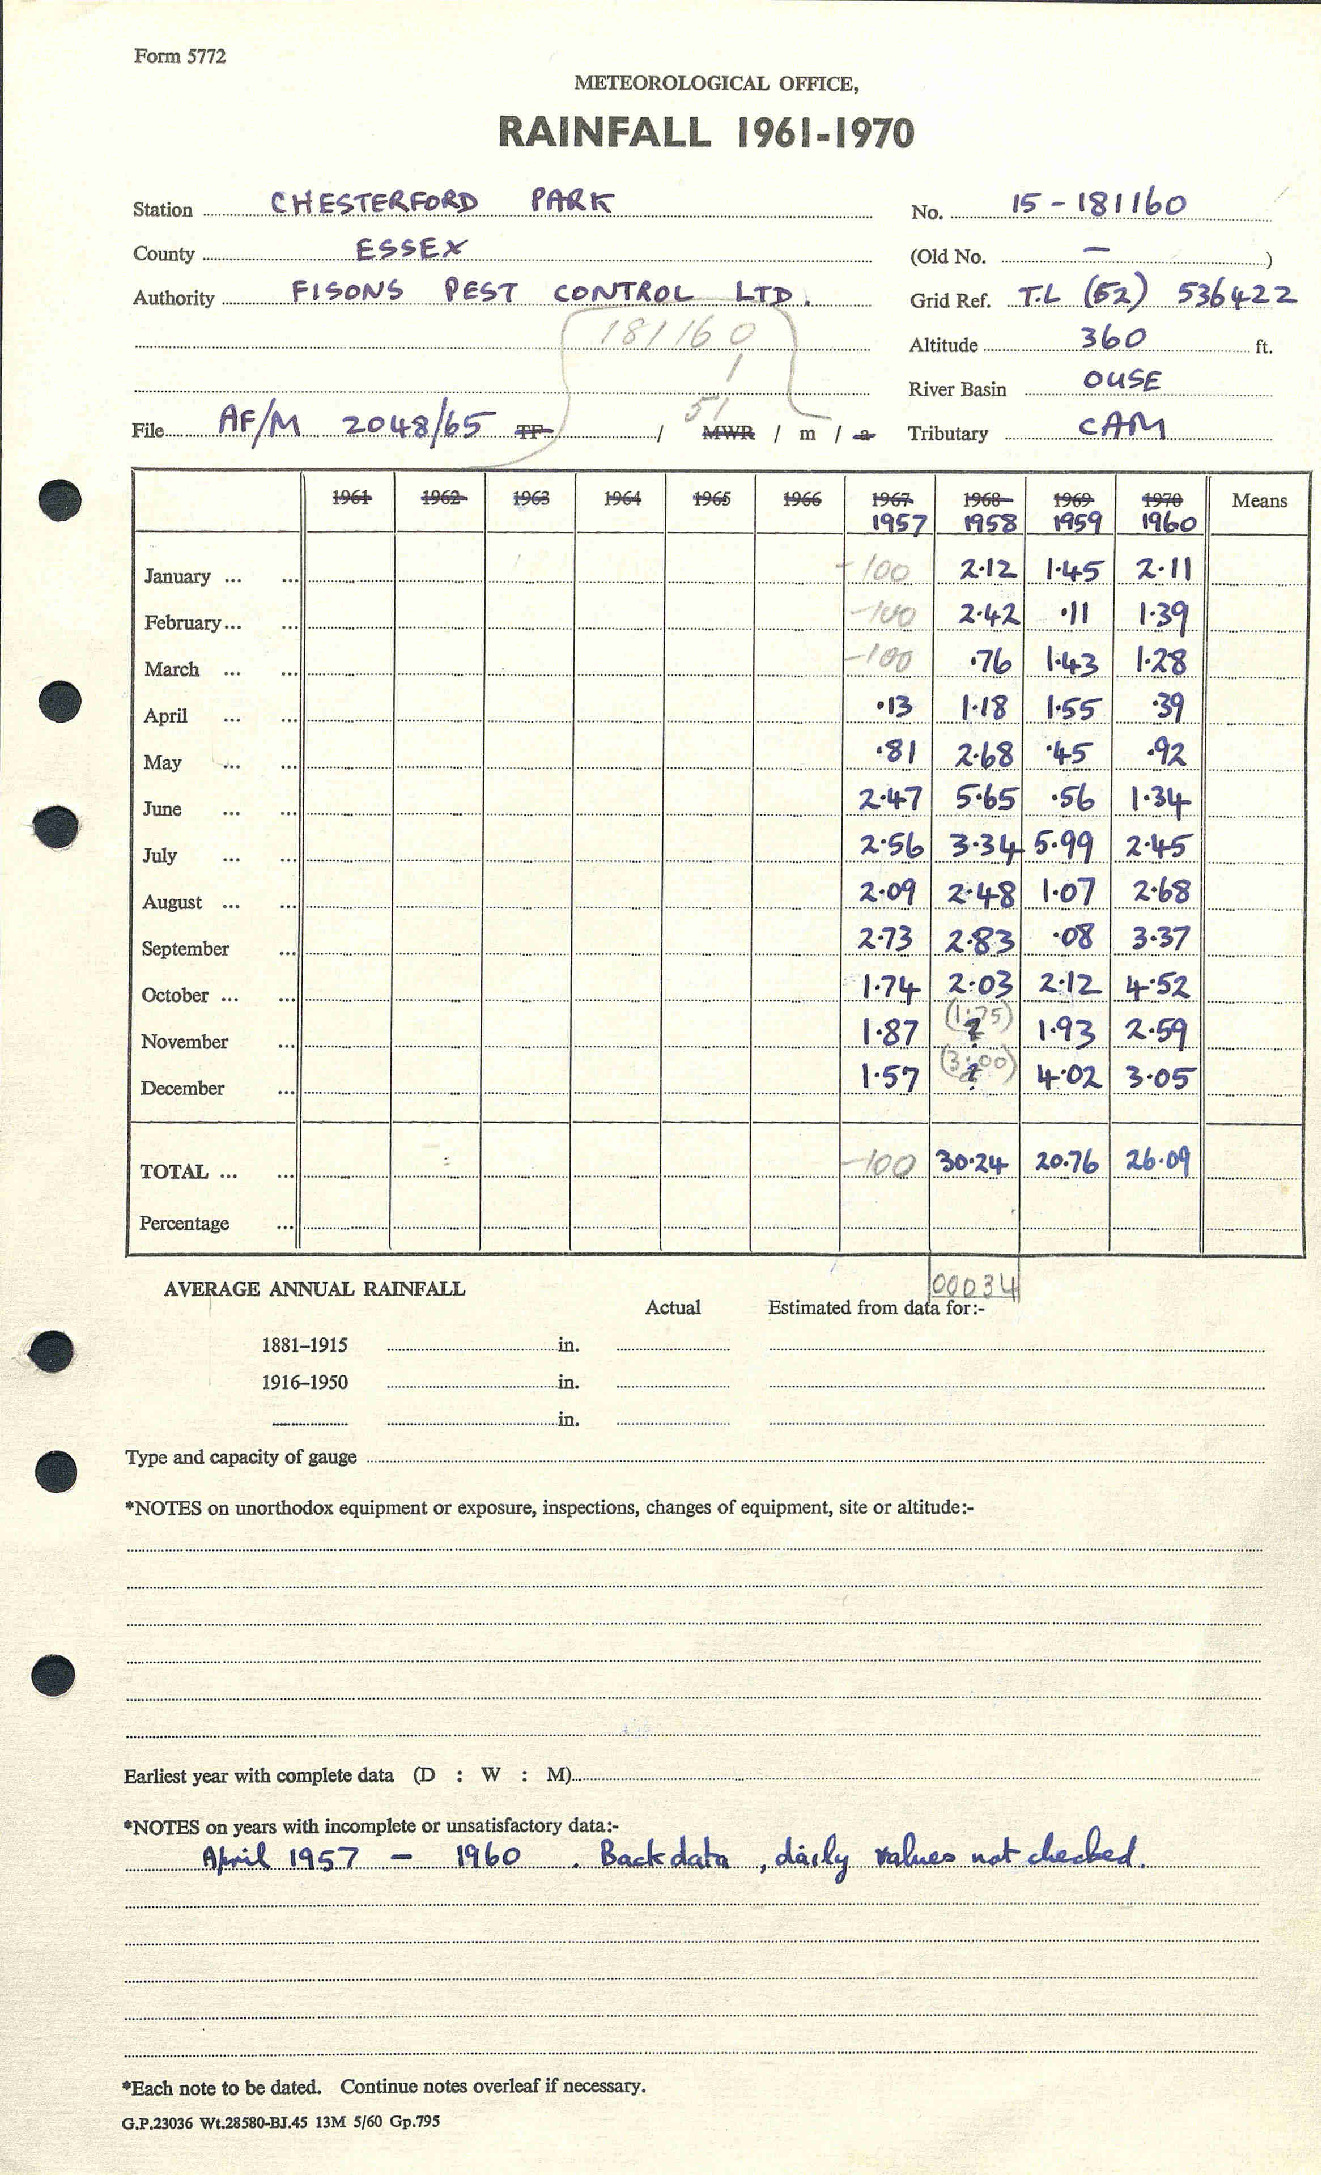 Form 5772
METEOROLOGICAL OFFICE,
RAINFALL 1961-1970
Station CHESTERFORD PARK No. 15-181160
County ESSEX (Old No. — )
Authority FISONS PEST CONTROL LTD. Grid Ref. T.L (52) 536422
181160 Altitude 360 ft.
1 River Basin OUSE
51
File AF/M 2048/65 TF / MWR / m / a Tributary CAM
1961 1962 1963 1964 1965 1966 1967 1968 1969 1970 Means
1957 1958 1959 1960
January ... ... -100 2.12 1.45 2.11
February... ... -100 2.42 .11 1.39
March ... ... -100 .76 1.43 1.28
April ... ... .13 1.18 1.55 .39
May ... ... .81 2.68 .45 .92
June ... ... 2.47 5.65 .56 1.34
July ... ... 2.56 3.34 5.99 2.45
August ... ... 2.09 2.48 1.07 2.68
September ... 2.73 2.83 .08 3.37
October ... ... 1.74 2.03 2.12 4.52
November ... 1.87 (1.75) ? 1.93 2.59
December ... 1.57 (3.00) ? 4.02 3.05
TOTAL ... ... -100 30.24 20.76 26.09
Percentage ...
00034
AVERAGE ANNUAL RAINFALL
Actual Estimated from data for:-
1881-1915 in.
1916-1950 in.
in.
Type and capacity of gauge
*NOTES on unorthodox equipment or exposure, inspections, changes of equipment, site or altitude:-
Earliest year with complete data (D : W : M)
*NOTES on years with incomplete or unsatisfactory data:-
April 1957 - 1960 . Back data , daily values not checked.
*Each note to be dated. Continue notes overleaf if necessary.
G.P.23036 Wt.28580-BJ.45 13M 5/60 Gp.795